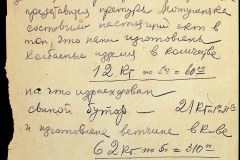 представитель претуры Мотулинское
составили настоящий акт в
том, что нами изготовлены
колбасные изделия в количестве
12 кг по 5= = 60=
на что израсходован
свиной бутор — 21 кг
и изготовлена ветчина в к-ве
62 кг по 5= = 310=